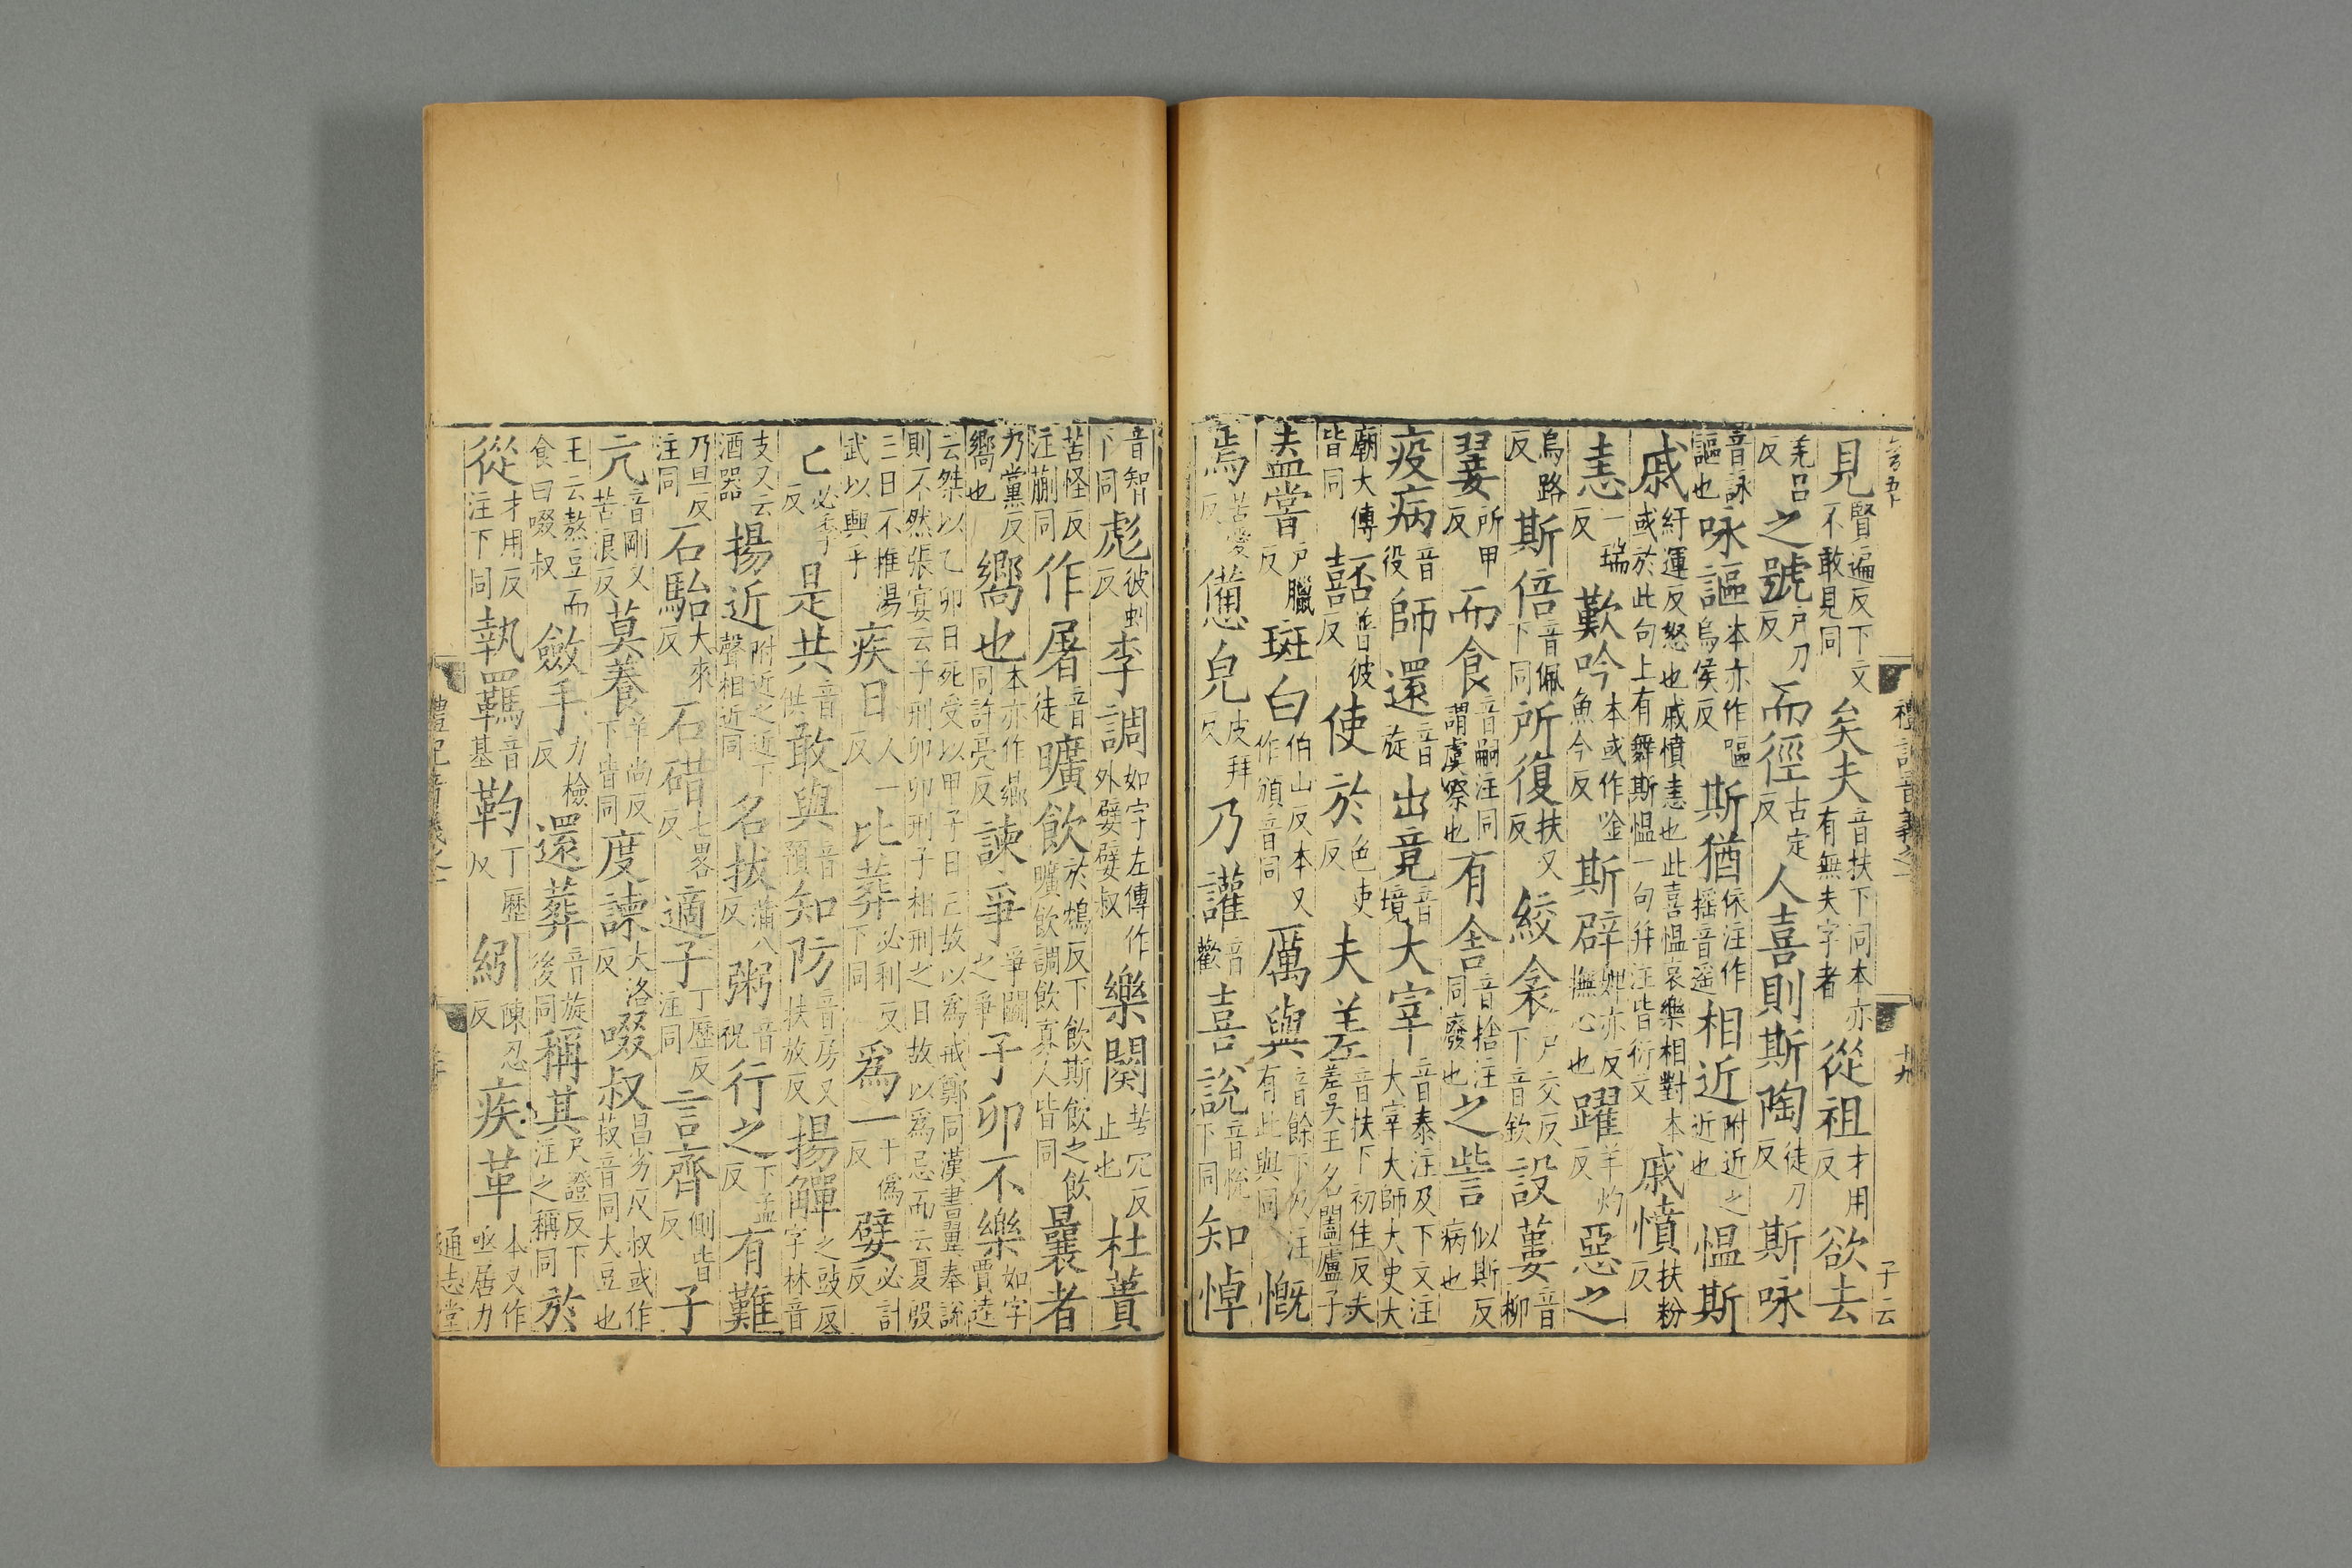 禮記音義之一 十九 子云
見賢遍反下文不敢見同矣夫音扶下同本亦有無夫字者從祖才用反欲去
羌呂反之號戶刀反而徑古定反人喜則斯陶徒刀反斯咏
音詠謳也咏謳本亦作嘔烏侯反斯猶依注作搖音遥相近附近之近也慍斯
戚紆運反怒也戚憤恚也此喜慍哀樂相對本或於此句上有舞斯慍一句并注皆衍文戚憤扶粉反
恚一瑞反歎吟本或作唫魚今反斯辟婢亦反撫心也躍羊灼反惡之
烏路反斯倍音佩下同所復扶又反絞衾戶交反下音欽設蔞音柳
翣所甲反而食音嗣注同謂虞祭也有舍音捨注同廢也之訾似斯反病也
疫病音役師還音旋出竟音境大宰音泰注及下文注大宰大師大史大
廟大傅皆同嚭普彼反使於色吏反夫差音扶下初佳反夫差吳王名闔廬子
盍當戶臘反斑白伯山反本又作頒音同厲與音餘下及注有此與同慨
焉苦愛反憊皃皮拜反乃讙音歡喜說音悅下同知悼
音智下同彪彼虯反李調如字左傳作外嬖嬖叔樂闋苦穴反止也杜蕢
苦怪反注蒯同作屠音徒曠飲於鴆反下飲斯飲之飲曠飲調飲寡人皆同曩者
乃黨反嚮也嚮也本亦作鄉同許亮反諫爭爭鬭之爭子卯不樂如字賈逵
云桀以乙卯日死受以甲子日亡故以爲戒鄭同漢書翼奉說則不然張晏云子刑卯卯刑子相刑之日故以爲忌而云夏殷
亡日不推湯武以興乎疾日人一反比葬必利反下同爲一于僞反嬖必計反
匕必季反是共音供敢與音預知防音房又扶放反揚觶之豉反字林音
支又云酒器揚近附近之近下聲相近同名拔蒲八反粥音祝行之下孟反有難
乃旦反注同石駘大來反石碏七畧反適子丁歷反注同言齊側皆反子
亢音剛又苦浪反莫養羊尚反下皆同度諫大洛反啜叔昌劣反叔或作菽音同大豆也
王云熬豆而食曰啜叔斂手力檢反還葬音旋後同稱其尺證反下注之稱同於
從才用反注下同執羈音基靮丁歷反紖陳忍反疾革本又作亟居力
通志堂